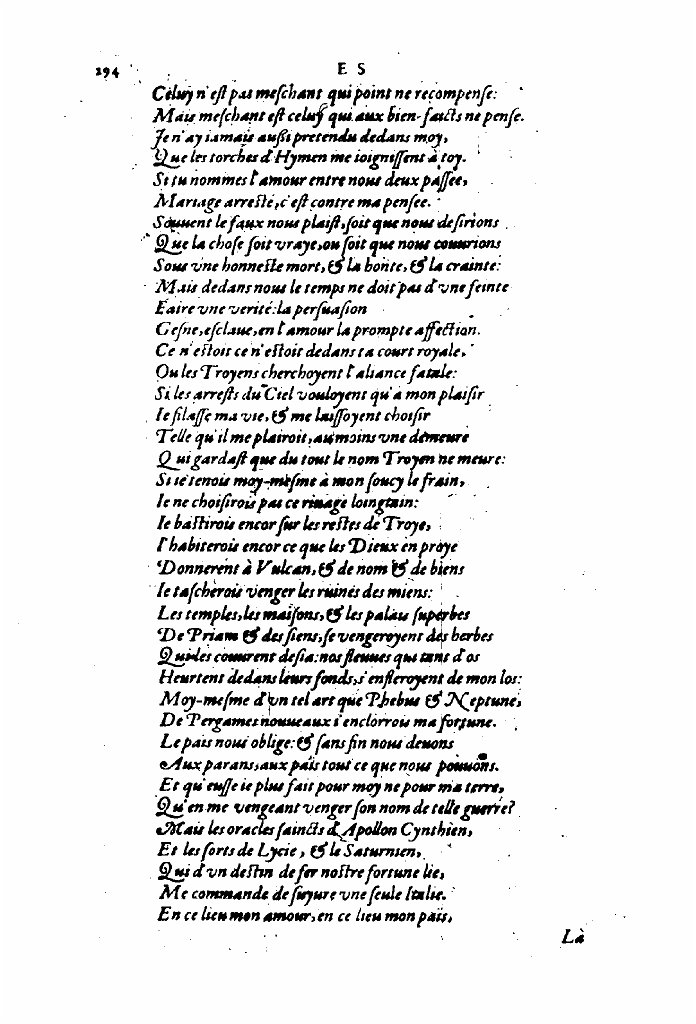 294
E S
Celuy n'eſt pas meſchant qui point ne recompenſe:
Mais meſchant eſt celuy qui aux bien-faicts ne penſe.
Je n'ay iamais außi pretendu dedans moy,
Que les torches d'Hymen me ioigniſſent à toy.
Si tu nommes l'amour entre nous deux paſſee,
Mariage arreſté, c'eſt contre ma penſee.
Souuent le faux nous plaiſt, ſoit que nous deſirions
Que la choſe ſoit vraye, ou ſoit que nous couurions
Sous vne honneſte mort, & la honte, & la crainte:
Mais dedans nous le temps ne doit pas d'vne feinte
Faire vne verité: la perſuaſion
Geſne, eſclaue, en l'amour la prompte affection.
Ce n'eſtoit ce n'eſtoit dedans ta court royale,
Ou les Troyens cherchoyent l'aliance fatale:
Si les arreſts du Ciel vouloyent qu'à mon plaiſir
Ie filaſſe ma vie, & me laiſſoyent choiſir
Telle qu'il me plairoit, au moins vne demeure
Qui gardaſt que du tout le nom Troyen ne meure:
Si ie tenois moy-meſme à mon ſoucy le frain,
Ie ne choiſirois pas ce riuage loingtain:
Ie baſtirois encor ſur les reſtes de Troye,
I'habiterois encor ce que les Dieux en proye
Donnerent à Vulcan, & de nom & de biens
Ie taſcherois venger les ruines des miens:
Les temples, les maiſons, & les palais ſuperbes
De Priam & des ſiens, ſe vengeroyent des herbes
Qui les couurent deſia: nos fleuues qui tant d'os
Heurtent dedans leurs fonds, s'enfleroyent de mon los:
Moy-meſme d'vn tel art que Phebus & Neptune,
De Pergames nouueaux i'enclorrois ma fortune.
Le païs nous oblige: & ſans fin nous deuons
Aux parans, aux païs tout ce que nous pouuons.
Et qu'euſſe ie plus fait pour moy ne pour ma terre,
Qu'en me vengeant venger ſon nom de telle guerre?
Mais les oracles ſaincts d'Apollon Cynthien,
Et les ſorts de Lycie, & le Saturnien,
Qui d'vn deſtin de fer noſtre fortune lie,
Me commande de ſuyure vne ſeule Italie.
En ce lieu mon amour, en ce lieu mon païs,
Là